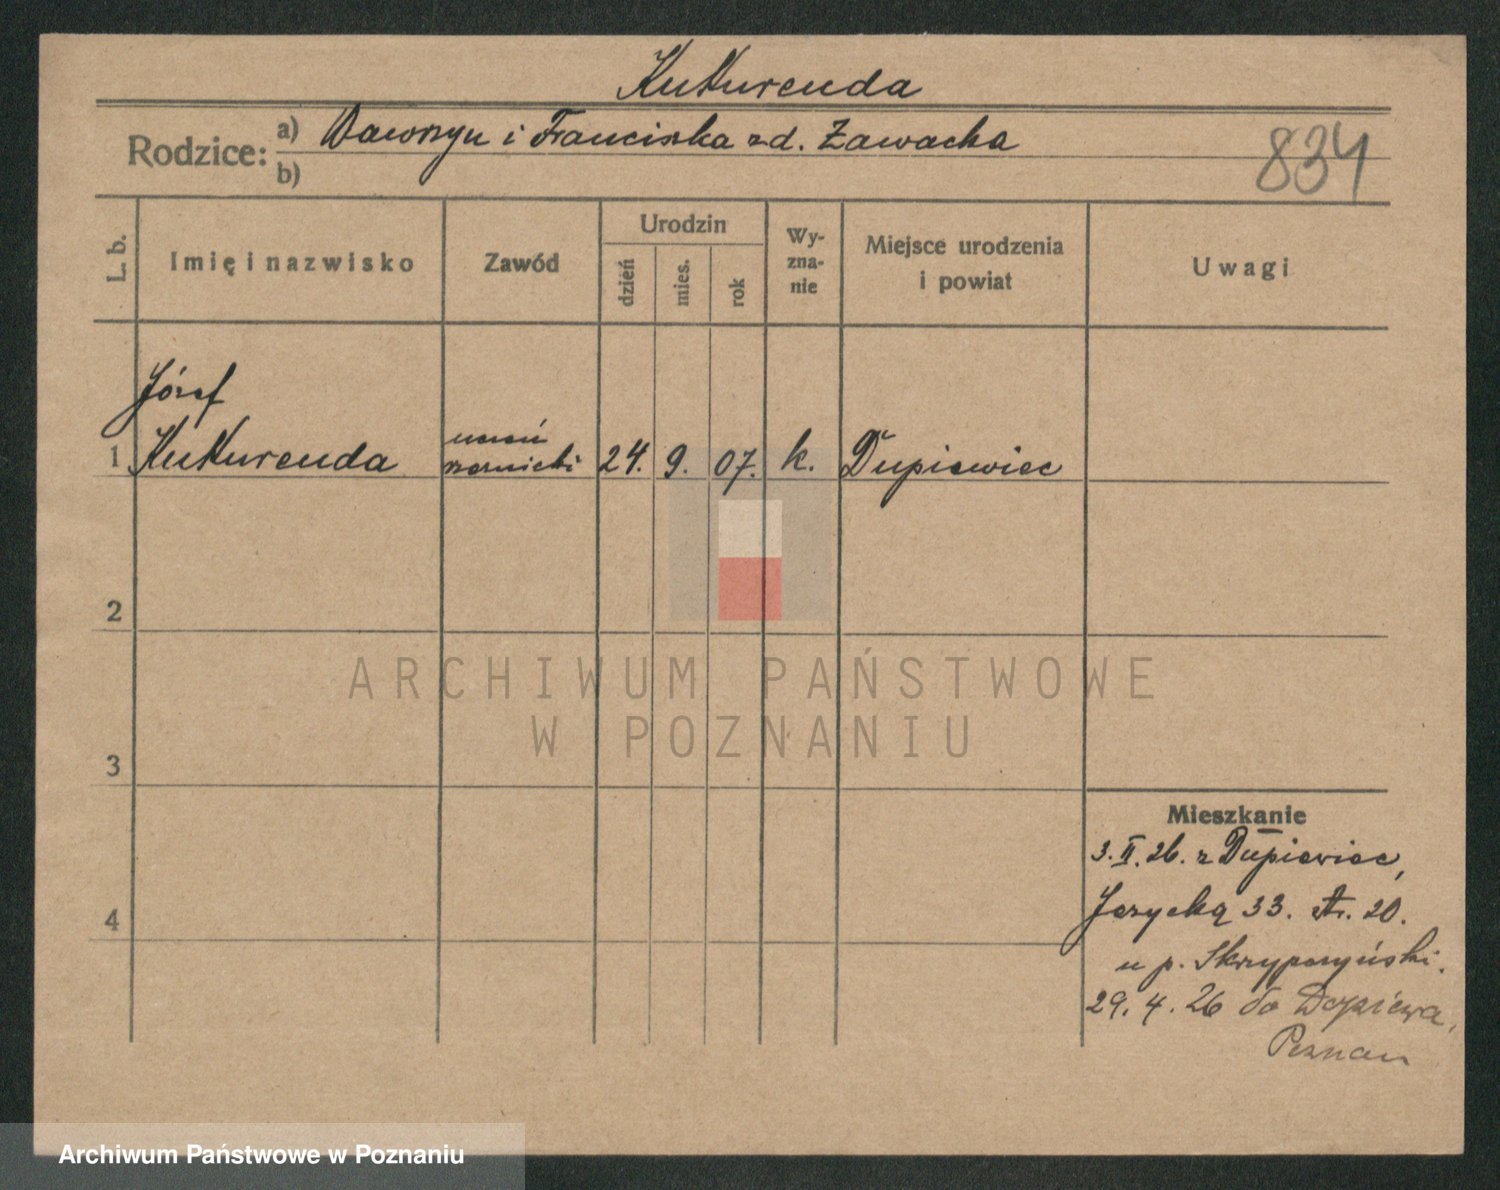 Kutturenda
Rodzice: a) Wawrzyn i Franciszka zd. Zawacka
b)
834
L. b.
Imię i nazwisko
Zawód
Urodzin
dzień
mies.
rok
Wy-
zna-
nie
Miejsce urodzenia
i powiat
Uwagi
Józef
1 Kutturenda
uczeń
rzeźnicki
24. 9. 07. k. Dupiewiec
2
3
4
Mieszkanie
3. II. 26. z Dupiewiec,
33. 20.
u p.
29. 4. 26 do Dopiewa,
Poznań
ARCHIWUM PAŃSTWOWE
W POZNANIU
Archiwum Państwowe w Poznaniu